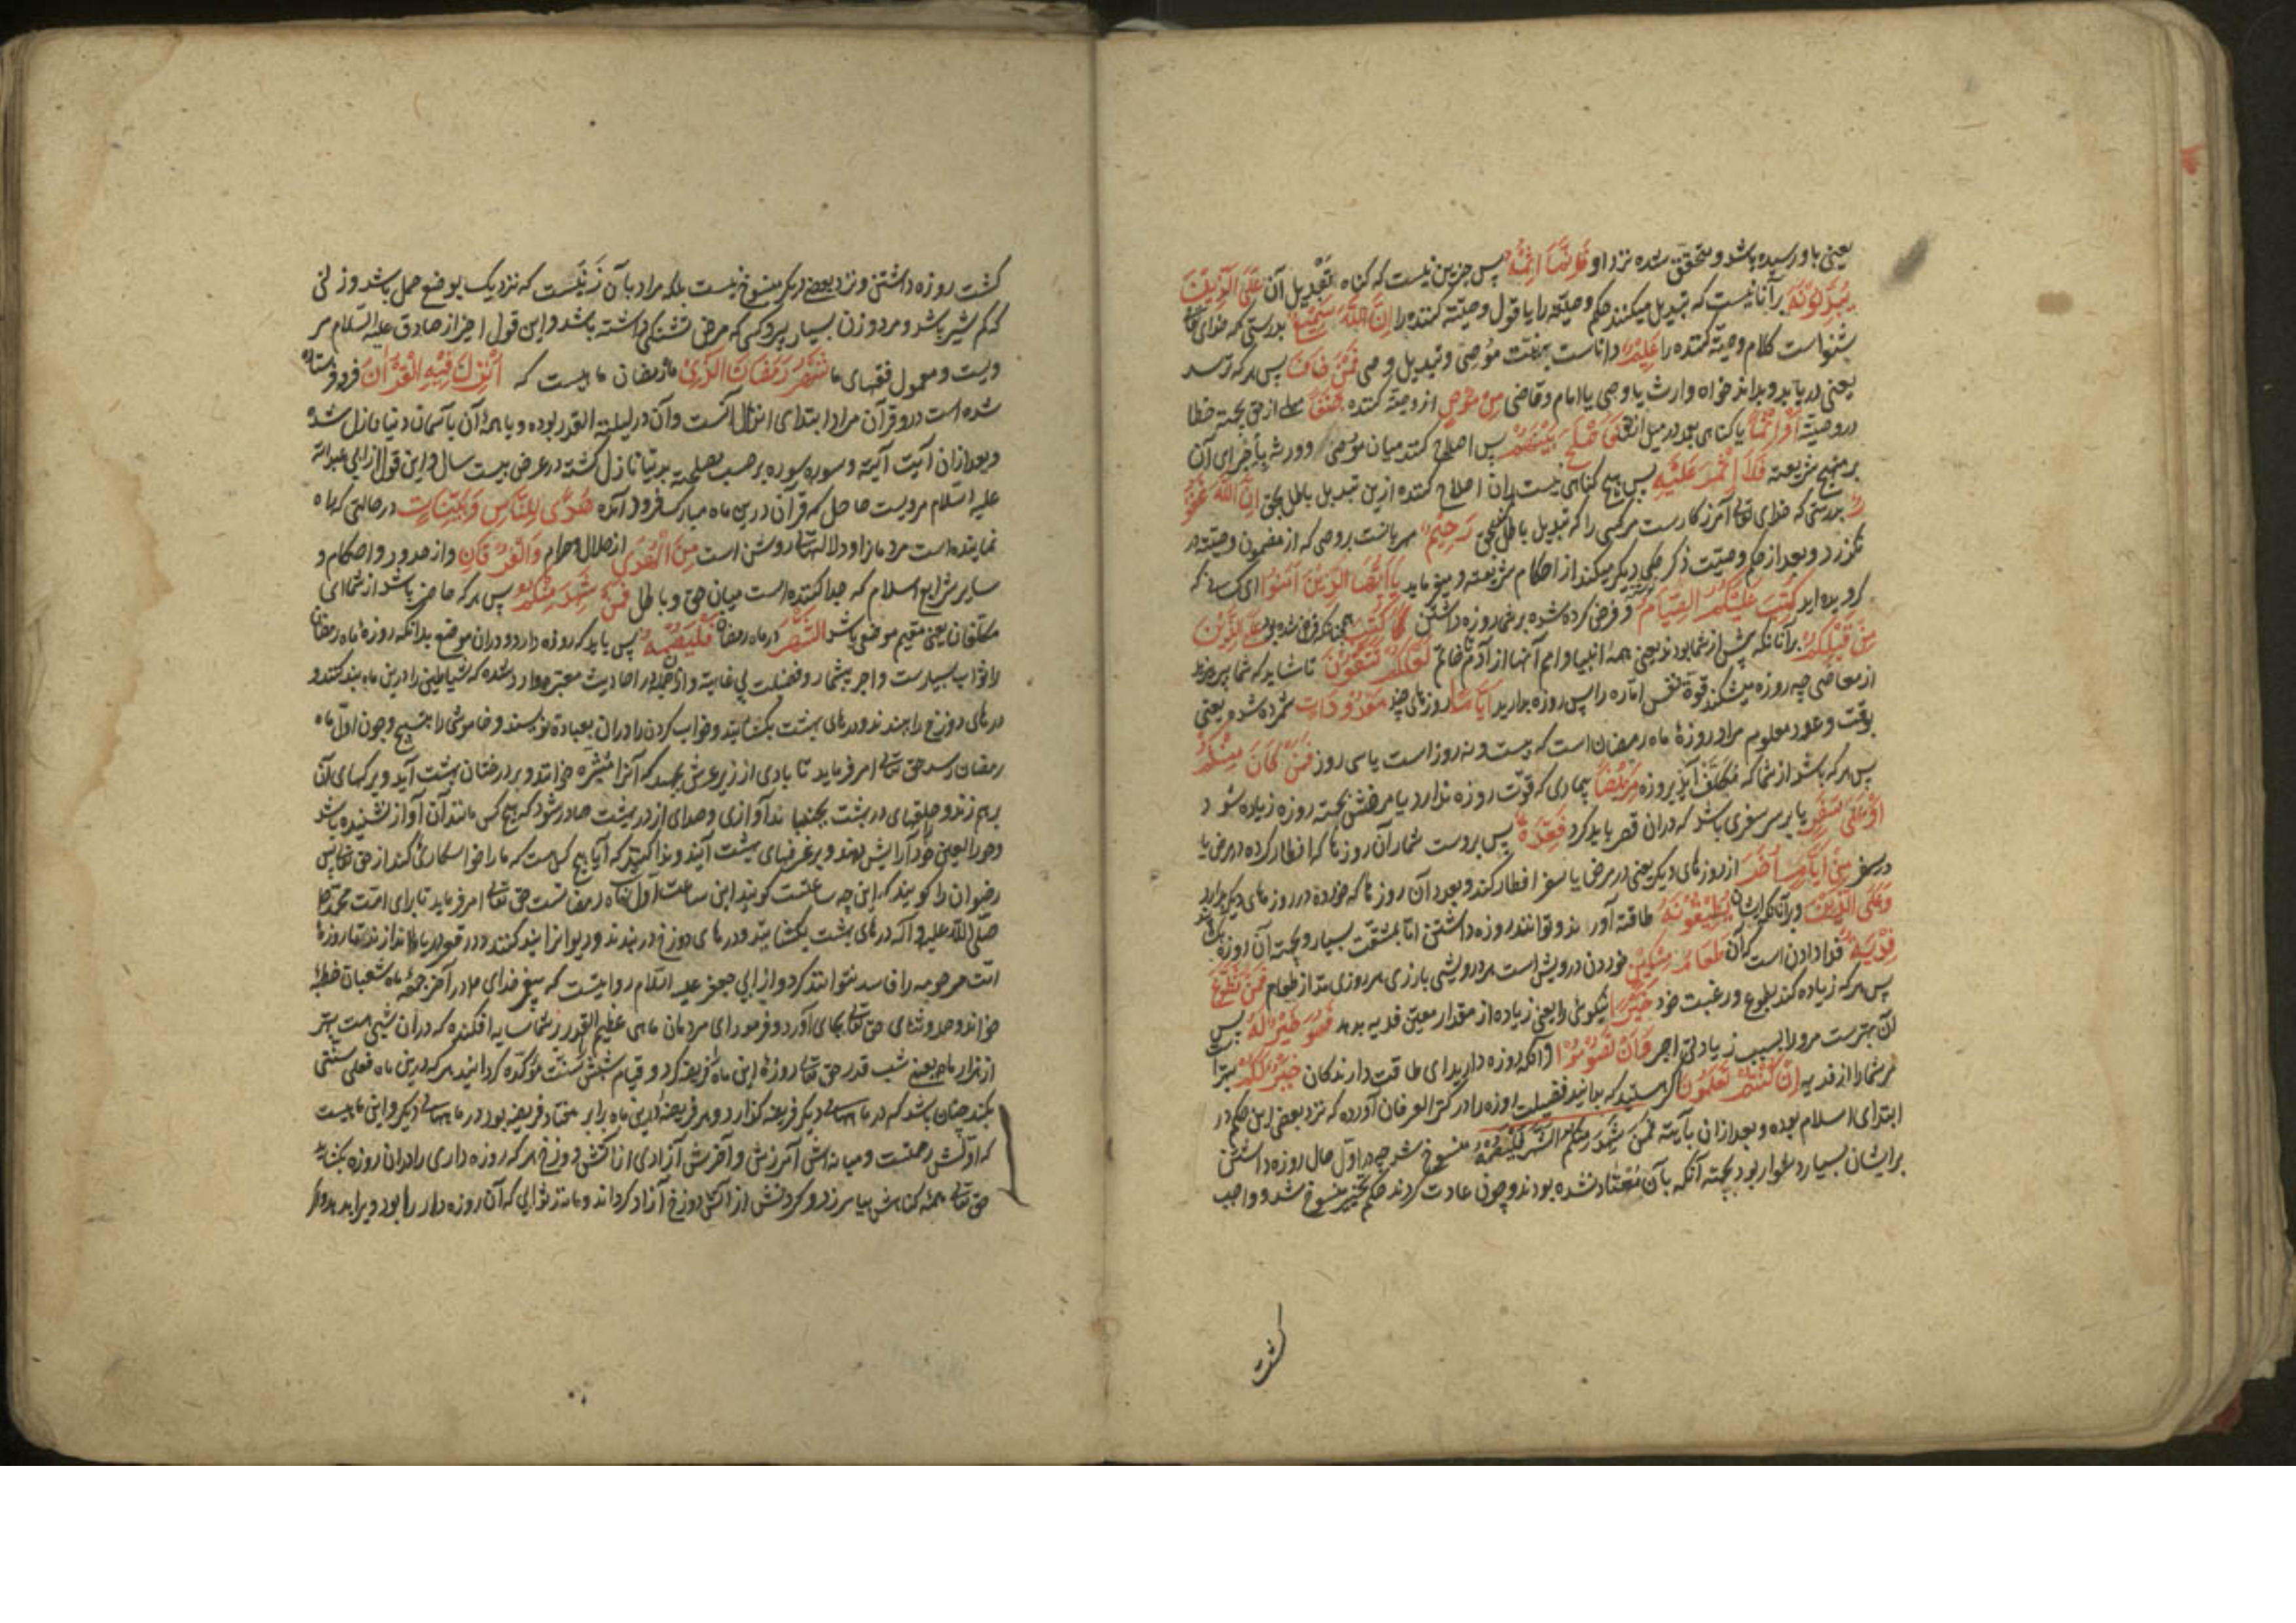 یعنی باو رسیده باشد و متحقق شده نزد او فَاِنَّمَا اِثْمُهُ پس جزین نیست که کناه تبدیل آن عَلَی الَّذِیْنَ
یُبَدِّلُوْنَهُ بر آنانیست که تبدیل میکنند حکم وصیّته را یا قول وصیّته کننده را اِنَّ اللّهَ سَمِیْعٌ بدرستی که خدای تعالی
شنواست کلام وصیّة کننده را عَلِیْمٌ داناست بمنفعت مُوصی و تبدیل وصی فَمَنْ خَافَ پس هر که ترسد
یعنی دریابد و بداند خواه وارث یا وصی یا امام و قاضی مِنْ مُوْصٍ از وصیّته کننده جَنَفًا میلی از حق بجهته خطا
در وصیّته اَوْ اِثْمًا یا کناهی بعمد در میل از حق فَاَصْلَحَ بَیْنَهُمْ پس اصلاح کند میان مُوصی و ورثه باجرای آن
بر منهج شریعته فَلَا اِثْمَ عَلَیْهِ پس هیچ کناهی نیست بر آن اصلاح کننده ازین تبدیل باطل بحق اِنَّ اللّهَ غَفُوْ
رٌ بدرستی که خدای تعالی آمرزکارست مر کسی را که تبدیل باطل کند بحق رَحِیْمٌ مهربانست بر وصی که از مضمون وصیّته در
نکذرد و بعد از حکم وصیّت ذکر حکمی دیکر میکند از احکام شریعته و میفرماید یَا اَیُّهَا الَّذِیْنَ آمَنُوْا ای کسانی که
کرویده اید کُتِبَ عَلَیْکُمُ الصِّیَامُ و فرض کرده شده بر شما روزه داشتن کَمَا کُتِبَ همچنانکه فرض شده بود عَلَی الَّذِیْنَ
مِنْ قَبْلِکُمْ بر آنانکه پیش از شما بودند یعنی همهٔ انبیا و امم آنها از آدم تا خاتم لَعَلَّکُمْ تَتَّقُوْنَ تا شاید که شما بپرهیزید
از معاصی چه روزه میشکند قوّة نفس امّاره را پس روزه بدارید اَیَّامًا روزهای چند مَعْدُوْدَاتٍ شمرده شده یعنی
بوقت و عدد معلوم مراد روزهٔ ماه رمضان است که بیست و نه روز است یا سی روز فَمَنْ کَانَ مِنْکُمْ
پس هر که باشد از شما که مکلّف اید بروزه مَرِیْضًا بیماری که قوّت روزه ندارد یا مرضش بجهته روزه زیاده شود
اَوْ عَلٰی سَفَرٍ یا بر سر سفری باشد که در آن قصر باید کرد فَعِدَّةٌ پس بروست شمار آن روزها که افطار کرده در مرض یا
در سفر مِنْ اَیَّامٍ اُخَرَ از روزهای دیکر یعنی در مرض یا سفر افطار کند و بعدد آن روزها که خورده در روزهای دیکر بدارد
وَعَلَی الَّذِیْنَ و بر آنانکه ایشان یُطِیْقُوْنَهُ طاقته آورند و توانند روزه داشتن امّا بمشقّت بسیار و بجهته آن روزه
فِدْیَةٌ فدا دادن است که آن طَعَامُ مِسْکِیْنٍ خوردن درویش است هر درویشی را بازی هر روزی مدّ از طعام فَمَنْ تَطَوَّعَ
پس هر که زیاده کند بطوع و رغبت خود خَیْرًا نیکوئی را یعنی زیاده از مقدار معیّن فدیه بدهد فَهُوَ خَیْرٌ لَهُ پس
آن بهترست مر او را بسبب زیادتی اجر وَاَنْ تَصُوْمُوْا و آنکه روزه دارید ای طاقت دارندکان خَیْرٌ لَکُمْ بهتر است
مر شما را از فدیه اِنْ کُنْتُمْ تَعْلَمُوْنَ اکر هستید که بدانید فضیلت روزه را در کنز العرفان آورده که نزد بعضی این حکم در
ابتدای اسلام بوده و بعد از آن بآیته فَمَنْ شَهِدَ مِنْکُمُ الشَّهْرَ فَلْیَصُمْهُ منسوخ شد چه در اوّل حال روزه داشتن
بر ایشان بسیار دشوار بود بجهته آنکه بآن معتاد نشده بودند و چون عادت کردند حکم تخییر منسوخ شد و واجب
کشت
کشت روزه داشتن و نزد بعضی دیکر منسوخ نیست بلکه مراد بآن زنیست که نزدیک بوضع حمل باشد و زنی
که کم شیر باشد و مرد و زن بسیار پیر و کسی که مرض تشنکی داشته باشد و این قول اخیر از صادق علیه السّلام مر
ویست و معمول فقهای ما شَهْرُ رَمَضَانَ الَّذِیْ ماه رمضان ماهیست که اُنْزِلَ فِیْهِ الْقُرْاٰنُ فرو فرستاده
شده است درو قرآن مراد ابتدای انزال آنست و آن در لیلة القدر بوده و یا همهٔ آن بآسمان دنیا نازل شد
و بعد از آن آیت آیته و سوره سوره بر حسب مصلحته بدنیا نازل کشته در عرض بیست سال و این قول از ابی عبداللّه
علیه السّلام مرویست حاصل که قرآن درین ماه مبارک فرود آمده هُدًی لِلنَّاسِ وَبَیِّنَاتٍ در حالتی که راه
نماینده است مردمانرا و دلالتهای روشن است مِنَ الْهُدٰی از حلال و حرام وَالْفُرْقَانِ و از حدود و احکام و
سایر شرایع اسلام که جدا کننده است میان حق و باطل فَمَنْ شَهِدَ مِنْکُمُ پس هر که حاضر باشد از شما ای
مکلّفان یعنی مقیم موضعی باشد الشَّهْرَ در ماه رمضان فَلْیَصُمْهُ پس باید که روزه دارد و در آن موضع بدانکه روزهٔ ماه رمضان
را ثواب بسیارست و اجر بیشمار و فضیلت بی غایته و از آنجمله در احادیث معتبره وارد شده که شیاطین را درین ماه بند کنند و
درهای دوزخ را ببندند و درهای بهشت بکشایند و خواب کردن را در آن عبادة نویسند و خاموشی را تسبیح و چون اوّل ماه
رمضان رسد حق تعالی امر فرماید تا بادی از زیر عرش بجهد که آنرا مثیره خوانند و بر درختان بهشت آید و برکهای آن
بر هم زند و حلقهای در بهشت بجنباند آوازی و صدای از در بهشت صادر شود که هیچ کس مانند آن آواز نشنیده باشد
و حور العین خود را آرایش دهند و بر غرفهای بهشت آیند و ندا کنند که آیا هیچ کس هست که ما را خواستکاری کند از حق تعالی پس
رضوان را کویند که این چه ساعتست کوید این ساعت اوّل ماه رمضانست حق تعالی امر فرماید تا برای امّت محمّد
صلّی اللّه علیه و آله درهای بهشت بکشایند و درهای دوزخ در بندند و دیوانرا بند کنند و در قعر دریاها اندازند تا روزهٔ
امّت مرحومه را فاسد نتوانند کرد و از ابی جعفر علیه السّلام روایتست که پیغمبر خدای در آخر جمعهٔ ماه شعبان خطبهٔ
خواند و حمد و ثنای حق تعالی بجای آورد و فرمود ای مردمان ماهی عظیم القدر بر شما سایه افکنده که در آن شبی هست بهتر
از هزار ماه یعنی شب قدر حق تعالی روزهٔ این ماه فریضه کرد و قیام شبش سنّت مؤکّده کردانید هر که درین ماه فعلی سنّتی
بکند چنان باشد که در ماههای دیکر فریضه کذارد و هر فریضهٔ درین ماه برابر هفتاد فریضه بود در ماههای دیکر و این ماهیست
که اوّلش رحمتست و میانه اش آمرزش و آخرش آزادی از آتش دوزخ هر که روزه داری را در آن روزه بکشاید
حق تعالی همهٔ کناهش بیامرزد و کردنش از آتش دوزخ آزاد کرداند و مانند ثوابی که آن روزه دار را بود ویرا بدهد